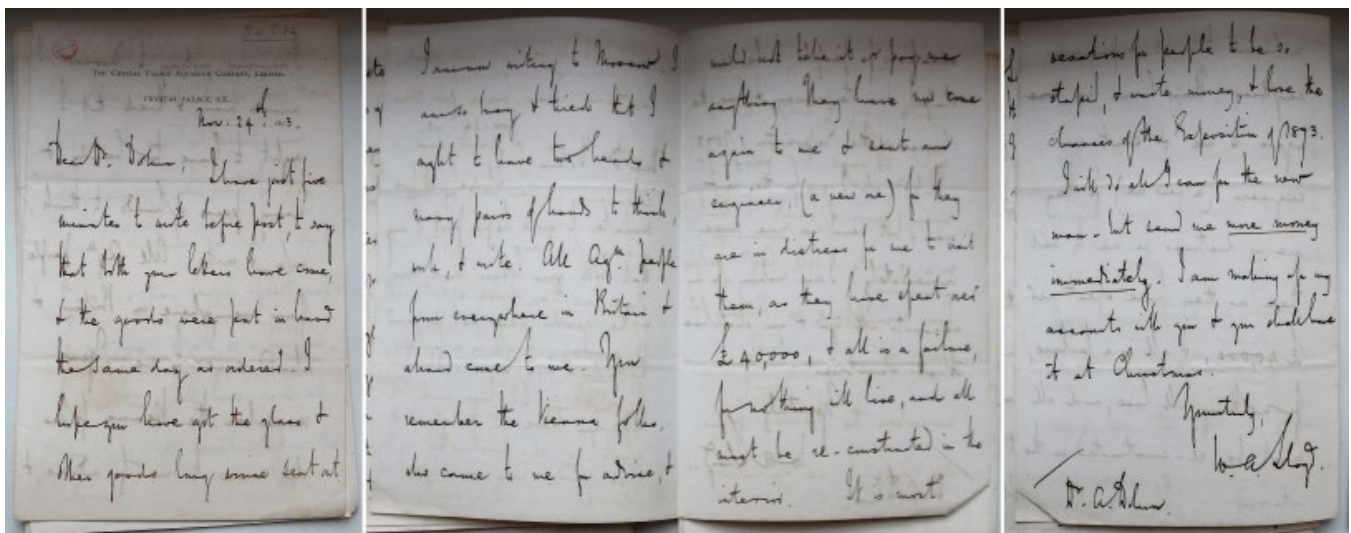 THE CRYSTAL PALACE AQUARIUM COMPANY, LIMITED.
CRYSTAL PALACE, S.E.
Nov: 24th
Dear Dr. Dohrn,
I have just five
minutes to write before post, to say
that both your letters have come,
& the goods were put in hand
the same day as ordered. I
hope you have got the glass &
other goods long since sent out
I am now writing to
am so busy & tired that I
ought to have two heads &
many pairs of hands to think,
work, & write. All Aqm. people
from everywhere in Britain &
abroad come to me. You
remember the Vienna folks.
who came to me for advice, &
would not take it or pay me
anything They have now come
again to me & sent an
engineer, (a new one) for they
are in distress for me to visit
them, as they have spent over
£40,000, & all is a failure,
for nothing will live, and all
must be re-constructed in the
interior. It is most
vexatious for people to be so
stupid, & waste money, & lose the
chances of the Exposition of 1873.
I will do all I can for the new
man - but send me more money
immediately. I am making up my
accounts with you & you shall have
it at Christmas.
Yours truly,
W. A. Lloyd.
Dr. A. Dohrn.